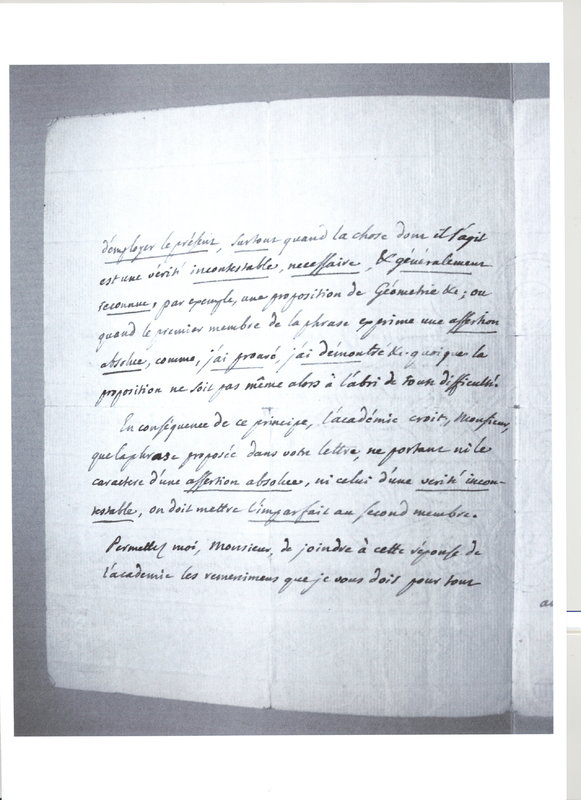 d'employer le présent, surtout quand la chose dont il s'agit
est une vérité incontestable, necessaire, & généralement
reconnue, par exemple, une proposition de Géometrie &c; ou
quand le premier membre de la phrase exprime une assertion
absolue, comme, j'ai prouvé, j'ai démontré &c. quoique la
proposition ne soit pas même alors à l'abri de toute difficulté.
En conséquence de ce principe, l'académie croit, Monsieur,
que la phrase proposée dans votre lettre, ne portant ni le
caractere d'une assertion absolue, ni celui d'une vérité incon-
testable, on doit mettre l'imparfait au second membre.
Permettez moi, Monsieur, de joindre à cette réponse de
l'academie les remercimens que je vous dois pour tout